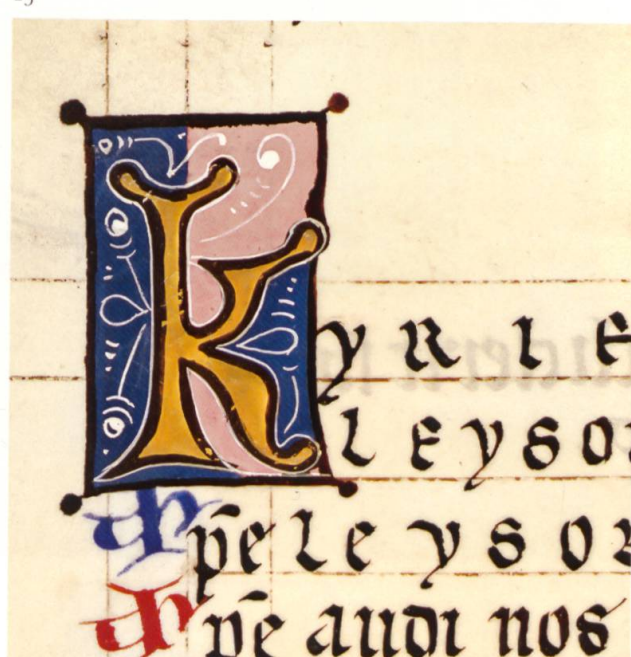 KYRIE
LEYSO
Xp̄e Leyso
Xp̄e audi nos